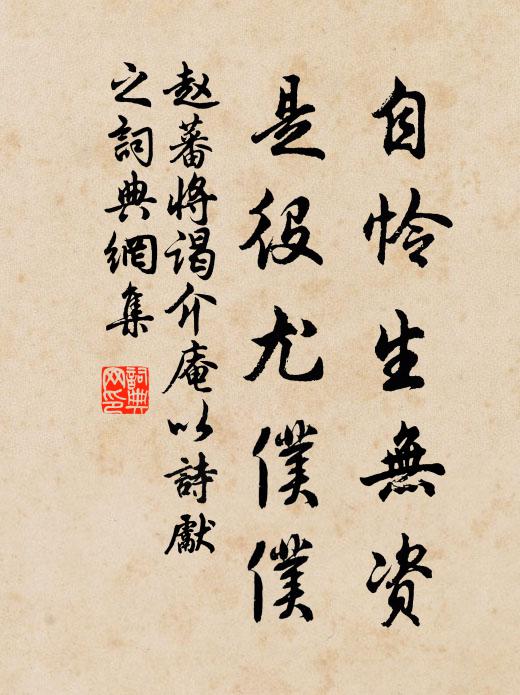 自怜生無资
是役尤僕僕
赵蕃将谒介庵以詩獻
之詞典網集
詞典
网印